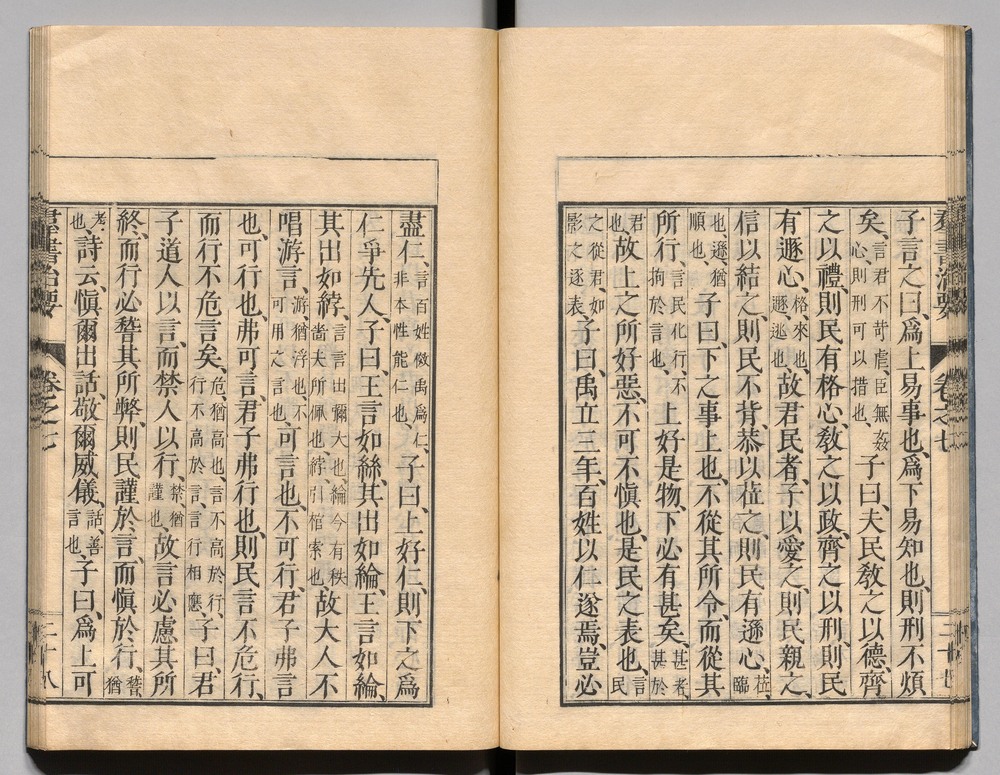 羣書治要 卷之七 二十七
子言之曰、爲上易事也、爲下易知也、則刑不煩
矣、言君不苛虐、臣無姦心、則刑可以措也、子曰、夫民敎之以德、齊
之以禮、則民有格心、敎之以政、齊之以刑、則民
有遯心、格、來也、遯、逃也、故君民者、子以愛之、則民親之、
信以結之、則民不背、恭以莅之、則民有遜心、莅、臨
也、遜、猶順也、子曰、下之事上也、不從其所令、而從其
所行、言民化行、不拘於言也、上好是物、下必有甚矣、甚者、甚於
君也、故上之所好惡、不可不愼也、是民之表也、言民
之從君、如影之逐表、子曰、禹立三年、百姓以仁遂焉、豈必
盡仁、言百姓傚禹爲仁、非本性能仁也、子曰、上好仁、則下之爲
仁爭先人、子曰、王言如絲、其出如綸、王言如綸、
其出如綍、言言出彌大也、綸今有秩嗇夫所佩也、綍、引棺索也、故大人不
唱游言、游猶浮也、不可用之言也、可言也、不可行、君子弗言
也、可行也、弗可言、君子弗行也、則民言不危行、
而行不危言矣、危、猶高也、言不高於行、行不高於言、言行相應、子曰、君
子道人以言、而禁人以行、禁、猶謹也、故言必慮其所
終、而行必稽其所弊、則民謹於言、而愼於行、稽、猶
考也、詩云、愼爾出話、敬爾威儀、話、善言也、子曰、爲上可
羣書治要 卷之七 二十八